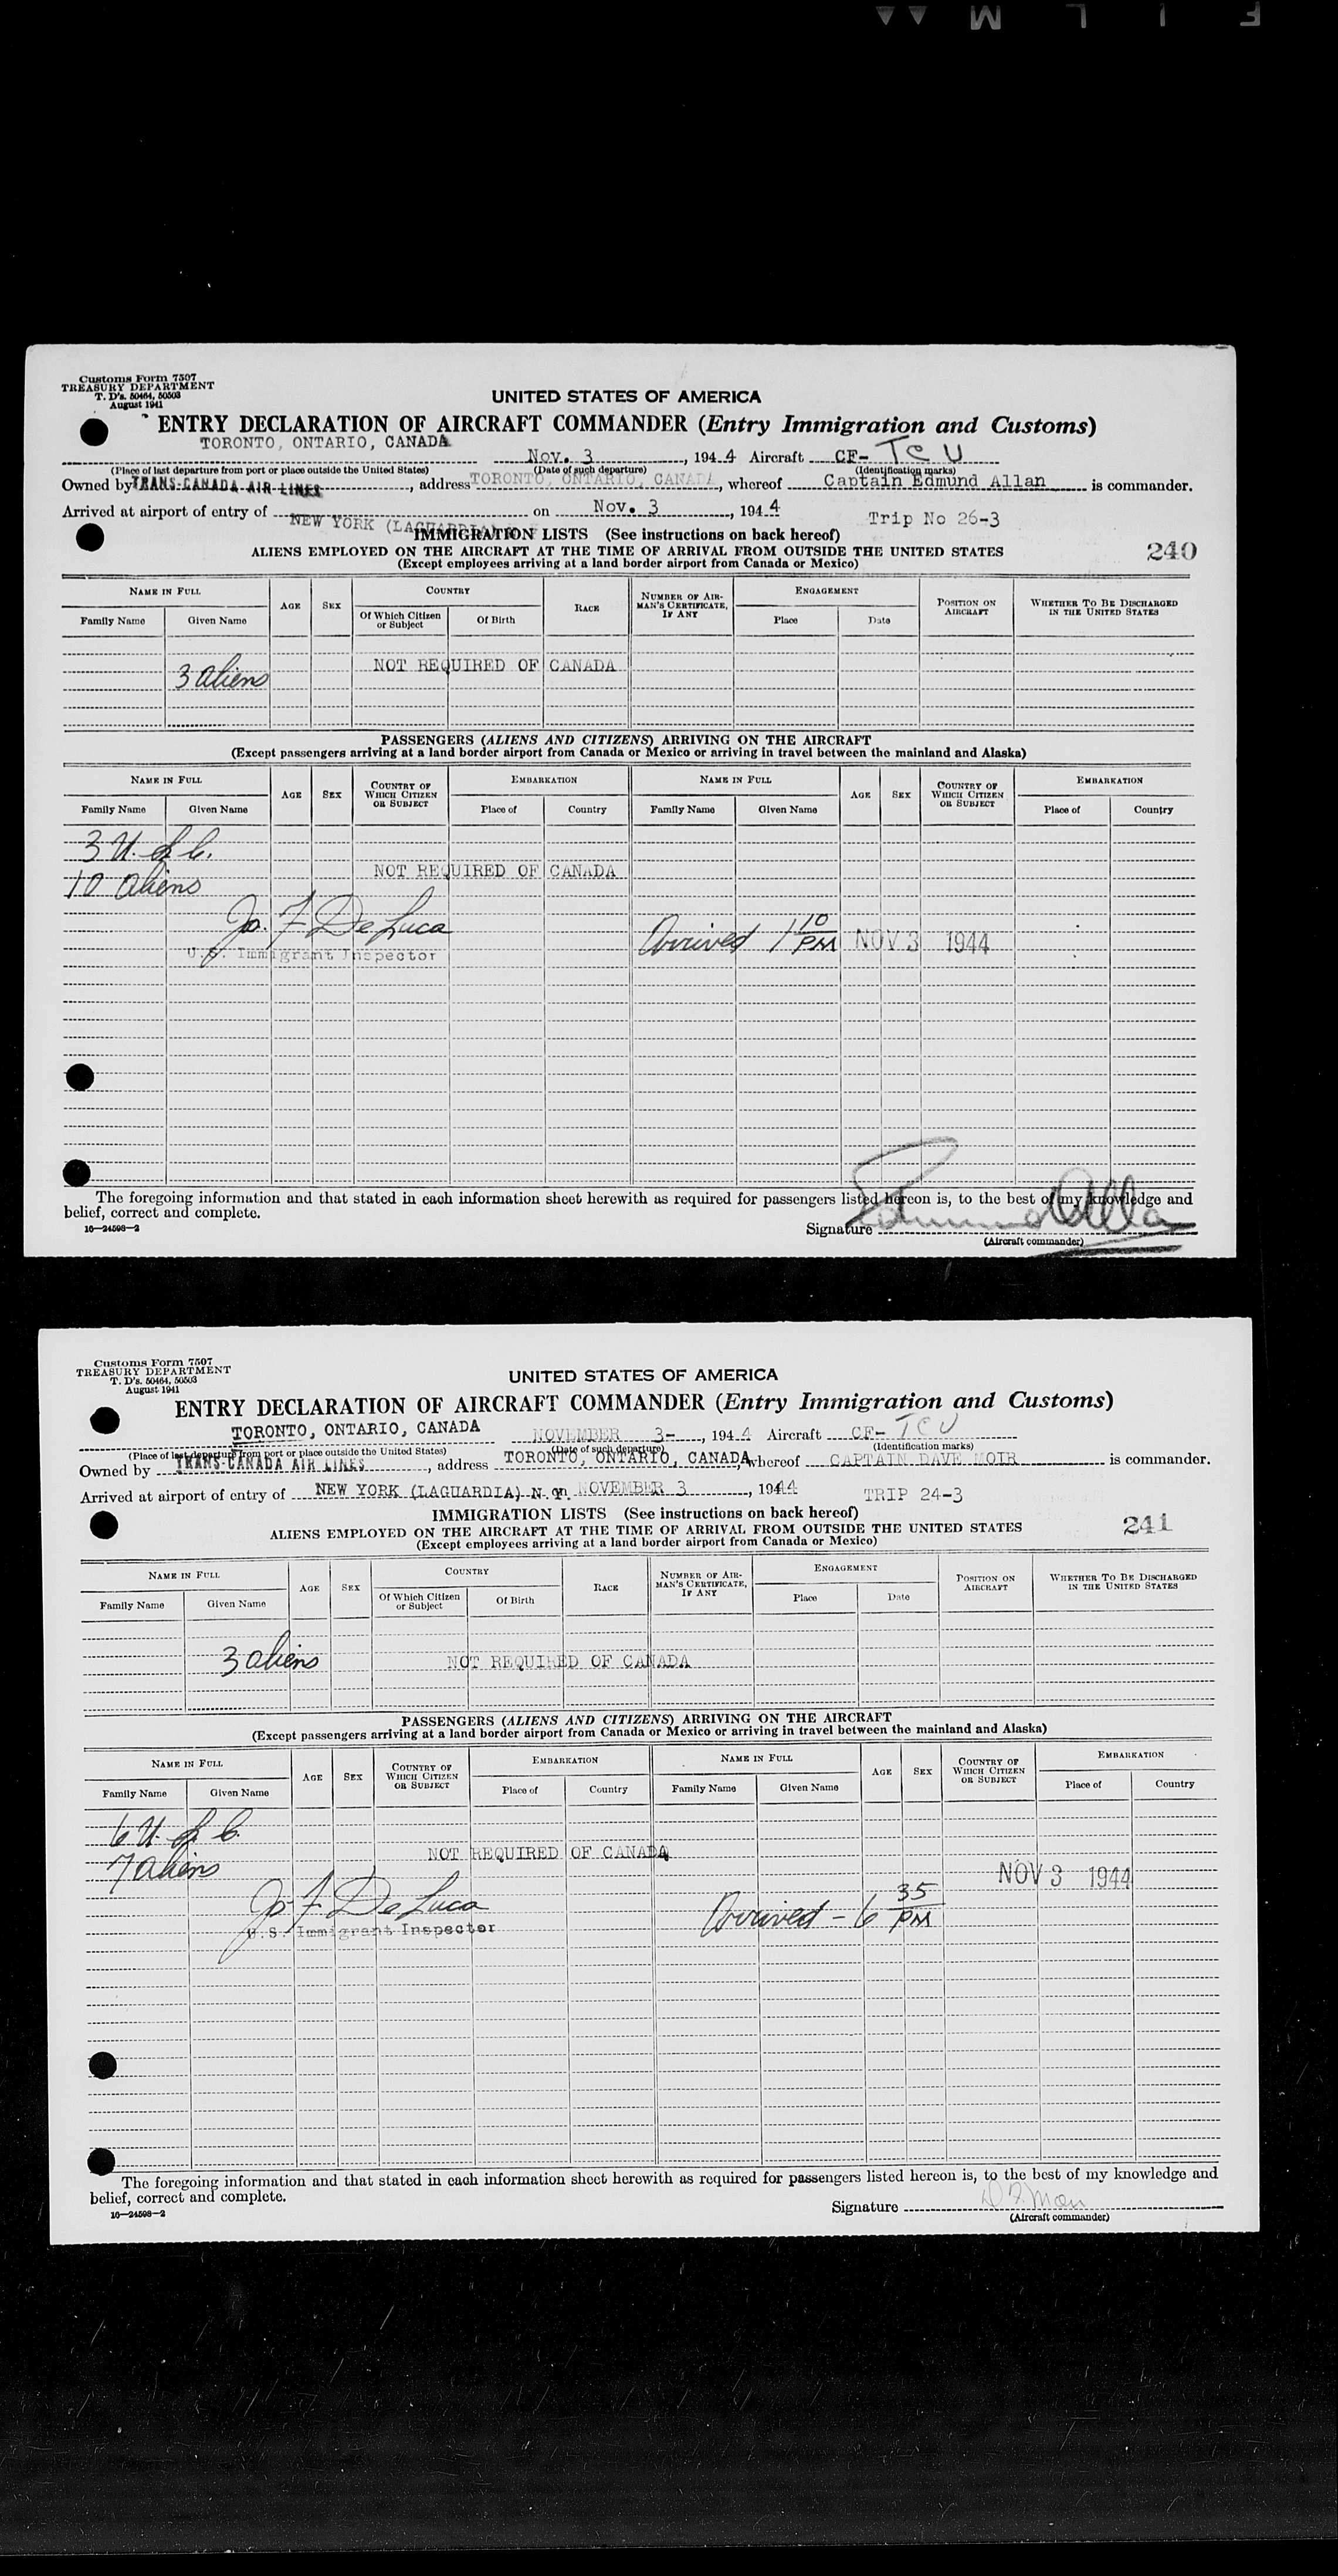 F I L M
Customs Form 7507
TREASURY DEPARTMENT
T. D's. 50464, 50503
August 1941
UNITED STATES OF AMERICA
ENTRY DECLARATION OF AIRCRAFT COMMANDER (Entry Immigration and Customs)
TORONTO, ONTARIO, CANADA
Nov. 3, 1944 Aircraft CF- TCU
(Place of last departure from port or place outside the United States) (Date of such departure) (Identification marks)
Owned by TRANS-CANADA AIR LINES, address TORONTO, ONTARIO, CANADA, whereof Captain Edmund Allan is commander.
Arrived at airport of entry of NEW YORK (LAGUARDIA) on Nov. 3, 1944 Trip No 26-3
IMMIGRATION LISTS (See instructions on back hereof)
ALIENS EMPLOYED ON THE AIRCRAFT AT THE TIME OF ARRIVAL FROM OUTSIDE THE UNITED STATES 240
(Except employees arriving at a land border airport from Canada or Mexico)
NAME IN FULL AGE SEX COUNTRY RACE NUMBER OF AIRMAN'S CERTIFICATE, IF ANY ENGAGEMENT POSITION ON AIRCRAFT WHETHER TO BE DISCHARGED IN THE UNITED STATES
Family Name Given Name Of Which Citizen or Subject Of Birth Place Date
NOT REQUIRED OF CANADA
3 aliens
PASSENGERS (ALIENS AND CITIZENS) ARRIVING ON THE AIRCRAFT
(Except passengers arriving at a land border airport from Canada or Mexico or arriving in travel between the mainland and Alaska)
NAME IN FULL AGE SEX COUNTRY OF WHICH CITIZEN OR SUBJECT EMBARKATION NAME IN FULL AGE SEX COUNTRY OF WHICH CITIZEN OR SUBJECT EMBARKATION
Family Name Given Name Place of Country Family Name Given Name Place of Country
3 U. S. C.
NOT REQUIRED OF CANADA
10 aliens
Jo. F De Luca Arrived 1 10 PM NOV 3 1944
U.S. Immigrant Inspector
The foregoing information and that stated in each information sheet herewith as required for passengers listed hereon is, to the best of my knowledge and
belief, correct and complete.
16—24598—2 Signature Edmund Allan
(Aircraft commander)
Customs Form 7507
TREASURY DEPARTMENT
T. D's. 50464, 50503
August 1941
UNITED STATES OF AMERICA
ENTRY DECLARATION OF AIRCRAFT COMMANDER (Entry Immigration and Customs)
TORONTO, ONTARIO, CANADA NOVEMBER 3-, 1944 Aircraft CF- TCU
(Place of last departure from port or place outside the United States) (Date of such departure) (Identification marks)
Owned by TRANS-CANADA AIR LINES, address TORONTO, ONTARIO, CANADA, whereof CAPTAIN DAVE MOIR is commander.
Arrived at airport of entry of NEW YORK (LAGUARDIA) N.Y. on NOVEMBER 3, 1944 TRIP 24-3
IMMIGRATION LISTS (See instructions on back hereof)
ALIENS EMPLOYED ON THE AIRCRAFT AT THE TIME OF ARRIVAL FROM OUTSIDE THE UNITED STATES 241
(Except employees arriving at a land border airport from Canada or Mexico)
NAME IN FULL AGE SEX COUNTRY RACE NUMBER OF AIRMAN'S CERTIFICATE, IF ANY ENGAGEMENT POSITION ON AIRCRAFT WHETHER TO BE DISCHARGED IN THE UNITED STATES
Family Name Given Name Of Which Citizen or Subject Of Birth Place Date
3 aliens NOT REQUIRED OF CANADA
PASSENGERS (ALIENS AND CITIZENS) ARRIVING ON THE AIRCRAFT
(Except passengers arriving at a land border airport from Canada or Mexico or arriving in travel between the mainland and Alaska)
NAME IN FULL AGE SEX COUNTRY OF WHICH CITIZEN OR SUBJECT EMBARKATION NAME IN FULL AGE SEX COUNTRY OF WHICH CITIZEN OR SUBJECT EMBARKATION
Family Name Given Name Place of Country Family Name Given Name Place of Country
6 U. S. C.
NOT REQUIRED OF CANADA
7 aliens NOV 3 1944
Jo. F. De Luca Arrived - 6 35 PM
U.S. Immigrant Inspector
The foregoing information and that stated in each information sheet herewith as required for passengers listed hereon is, to the best of my knowledge and
belief, correct and complete.
16—24598—2 Signature D F Moir
(Aircraft commander)